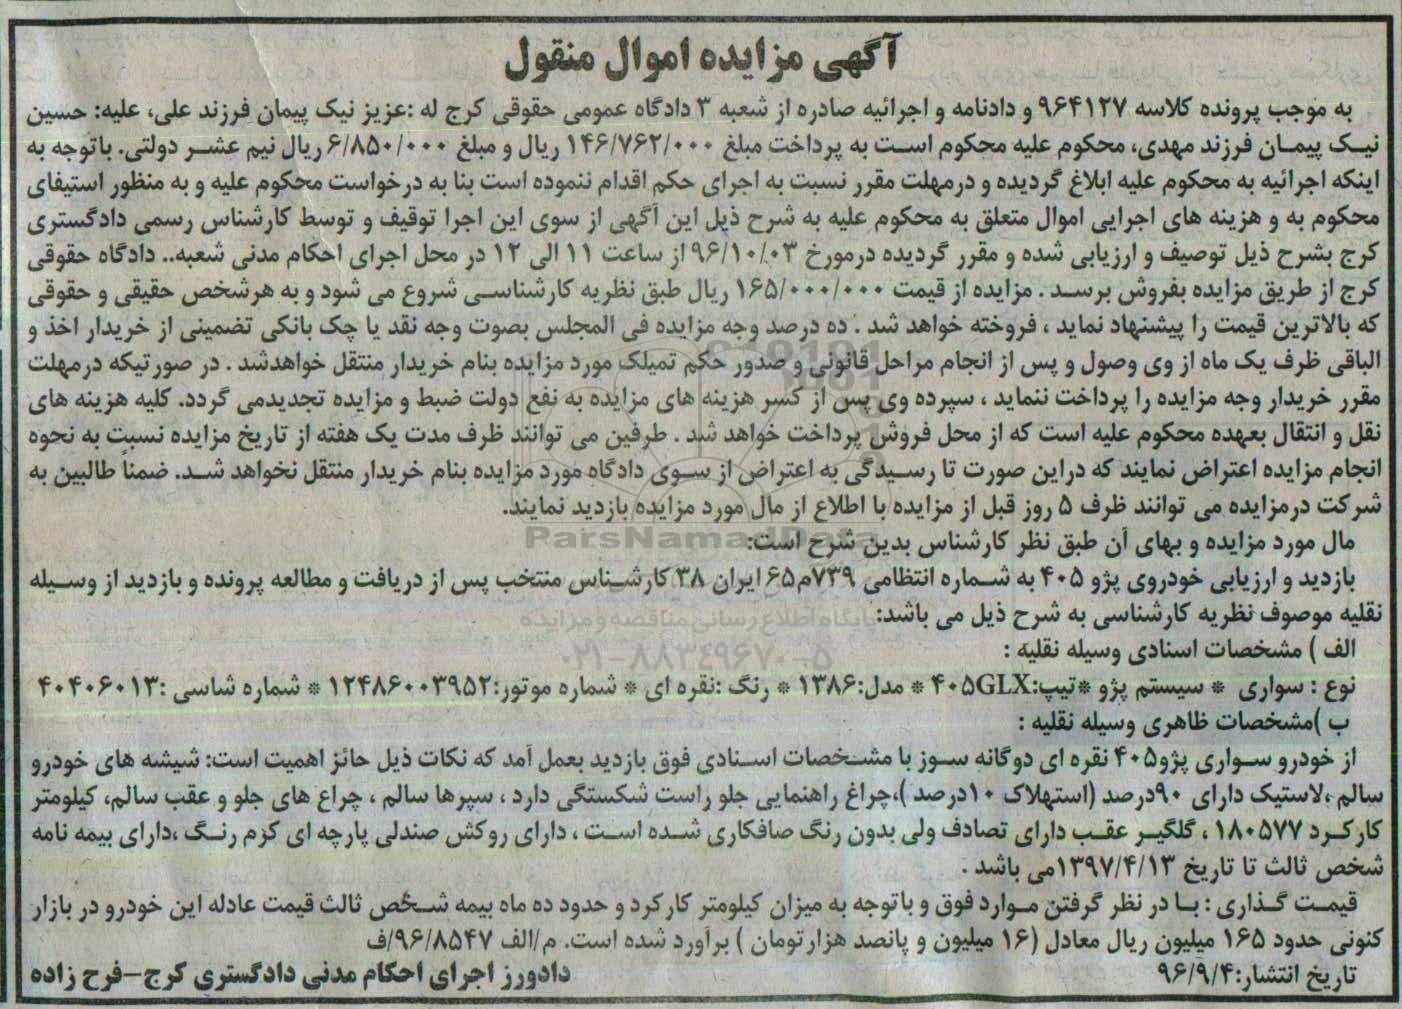 آگهی مزایده اموال منقول
به موجب پرونده کلاسه ۹۶۴۱۲۷ و دادنامه و اجرائیه صادره از شعبه ۳ دادگاه عمومی حقوقی کرج له :عزیز نیک پیمان فرزند علی، علیه: حسین
نیک پیمان فرزند مهدی، محکوم علیه محکوم است به پرداخت مبلغ ۱۴۶/۷۶۲/۰۰۰ ریال و مبلغ ۶/۸۵۰/۰۰۰ ریال نیم عشر دولتی. باتوجه به
اینکه اجرائیه به محکوم علیه ابلاغ گردیده و درمهلت مقرر نسبت به اجرای حکم اقدام ننموده است بنا به درخواست محکوم علیه و به منظور استیفای
محکوم به و هزینه های اجرایی اموال متعلق به محکوم علیه به شرح ذیل این آگهی از سوی این اجرا توقیف و توسط کارشناس رسمی دادگستری
کرج بشرح ذیل توصیف و ارزیابی شده و مقرر گردیده درمورخ ۹۶/۱۰/۰۳ از ساعت ۱۱ الی ۱۲ در محل اجرای احکام مدنی شعبه.. دادگاه حقوقی
کرج از طریق مزایده بفروش برسد . مزایده از قیمت ۱۶۵/۰۰۰/۰۰۰ ریال طبق نظریه کارشناسی شروع می شود و به هرشخص حقیقی و حقوقی
که بالاترین قیمت را پیشنهاد نماید ، فروخته خواهد شد . ده درصد وجه مزایده فی المجلس بصوت وجه نقد یا چک بانکی تضمینی از خریدار اخذ و
الباقی ظرف یک ماه از وی وصول و پس از انجام مراحل قانونی و صدور حکم تمیلک مورد مزایده بنام خریدار منتقل خواهدشد . در صورتیکه درمهلت
مقرر خریدار وجه مزایده را پرداخت ننماید ، سپرده وی پس از کسر هزینه های مزایده به نفع دولت ضبط و مزایده تجدیدمی گردد. کلیه هزینه های
نقل و انتقال بعهده محکوم علیه است که از محل فروش پرداخت خواهد شد . طرفین می توانند ظرف مدت یک هفته از تاریخ مزایده نسبت به نحوه
انجام مزایده اعتراض نمایند که دراین صورت تا رسیدگی به اعتراض از سوی دادگاه مورد مزایده بنام خریدار منتقل نخواهد شد. ضمناً طالبین به
شرکت درمزایده می توانند ظرف ۵ روز قبل از مزایده با اطلاع از مال مورد مزایده بازدید نمایند.
ParsNamadData
مال مورد مزایده و بهای آن طبق نظر کارشناس بدین شرح است:
بازدید و ارزیابی خودروی پژو ۴۰۵ به شماره انتظامی ۷۳۹م۶۵ ایران ۳۸ کارشناس منتخب پس از دریافت و مطالعه پرونده و بازدید از وسیله
نقلیه موصوف نظریه کارشناسی به شرح ذیل می باشد:
پایگاه اطلاع رسانی مناقصه و مزایده
الف ) مشخصات اسنادی وسیله نقلیه :
۰۲۱-۸۸۳۴۹۶۷۰-۵
نوع : سواری * سیستم پژو *تیپ:۴۰۵GLX * مدل:۱۳۸۶ * رنگ :نقره ای * شماره موتور:۱۲۴۸۶۰۰۳۹۵۲ * شماره شاسی :۴۰۴۰۶۰۱۳
ب )مشخصات ظاهری وسیله نقلیه :
از خودرو سواری پژو۴۰۵ نقره ای دوگانه سوز با مشخصات اسنادی فوق بازدید بعمل آمد که نکات ذیل حائز اهمیت است: شیشه های خودرو
سالم ،لاستیک دارای ۹۰درصد (استهلاک ۱۰درصد )،چراغ راهنمایی جلو راست شکستگی دارد ، سپرها سالم ، چراغ های جلو و عقب سالم، کیلومتر
کارکرد ۱۸۰۵۷۷ ، گلگیر عقب دارای تصادف ولی بدون رنگ صافکاری شده است ، دارای روکش صندلی پارچه ای کرم رنگ ،دارای بیمه نامه
شخص ثالث تا تاریخ ۱۳۹۷/۴/۱۳می باشد .
قیمت گذاری : با در نظر گرفتن موارد فوق و باتوجه به میزان کیلومتر کارکرد و حدود ده ماه بیمه شخص ثالث قیمت عادله این خودرو در بازار
کنونی حدود ۱۶۵ میلیون ریال معادل (۱۶ میلیون و پانصد هزارتومان ) برآورد شده است. م/الف ۹۶/۸۵۴۷/ف
تاریخ انتشار:۹۶/۹/۴
دادورز اجرای احکام مدنی دادگستری کرج-فرح زاده